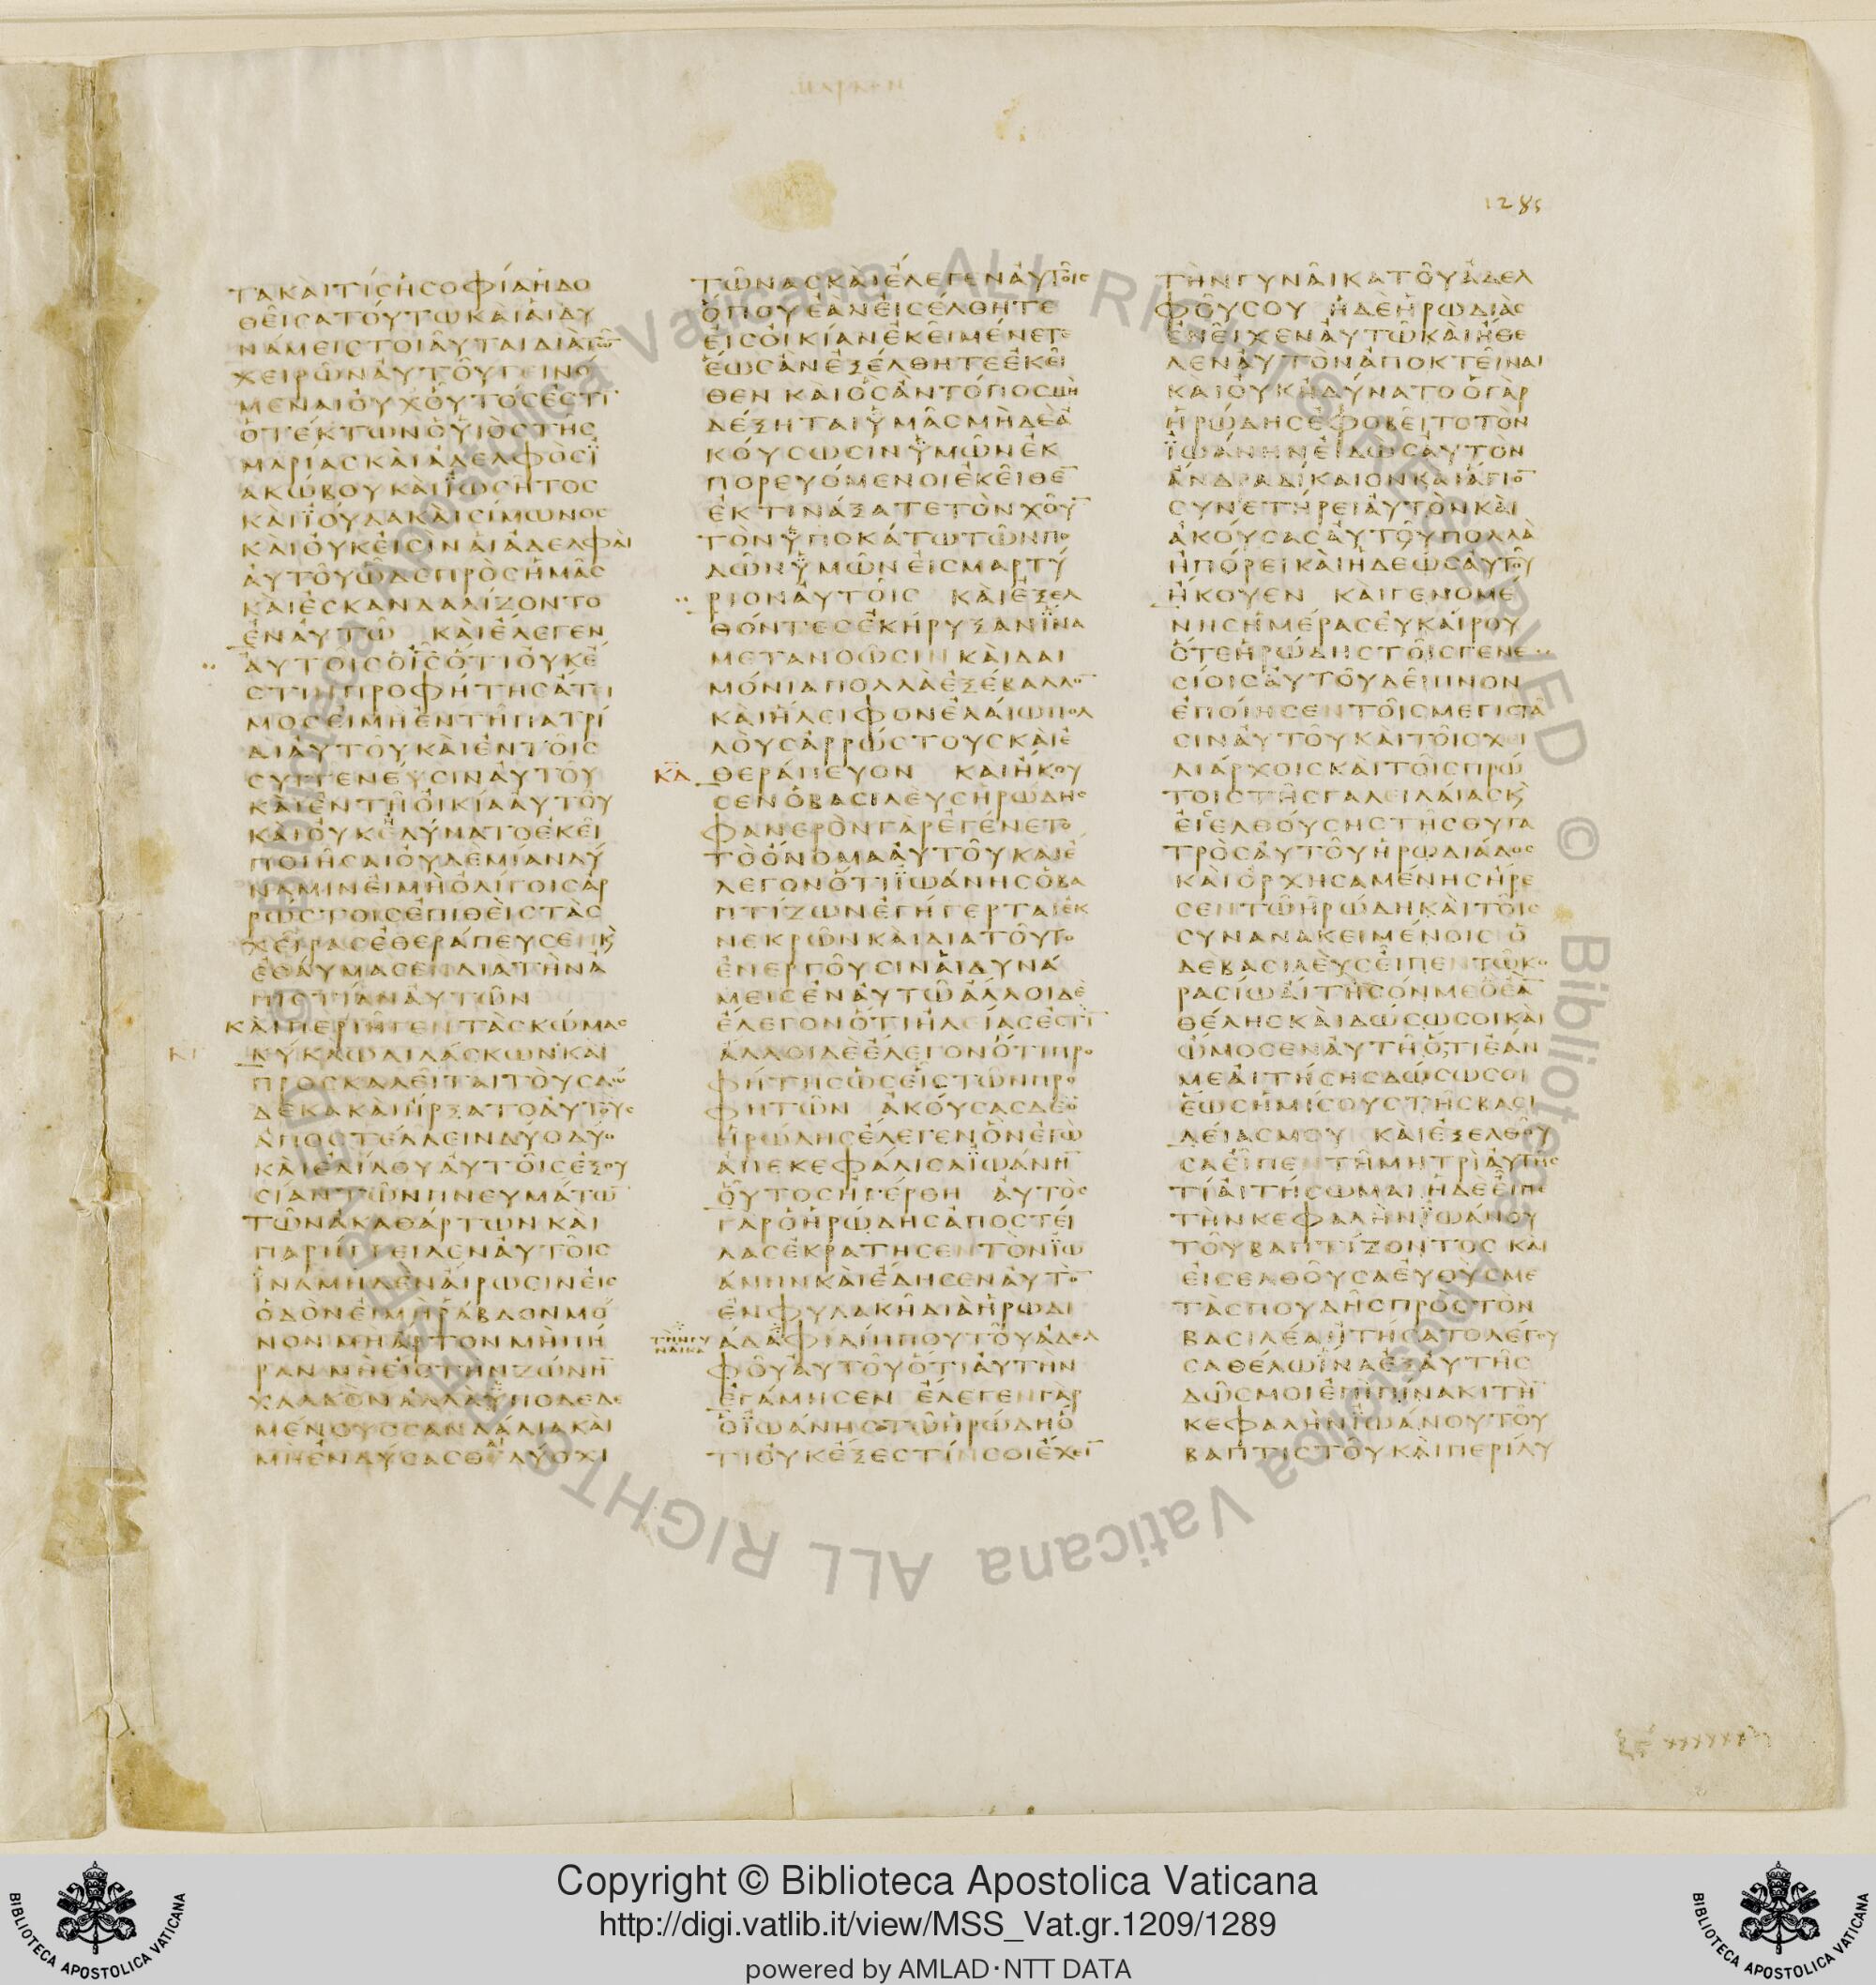 1285
ΤΑΚΑΙΤΙΣΗΣΟΦΙΑΗΔΟ
ΘΕΙΣΑΤΟΥΤΩΚΑΙΑΙΔΥ
ΝΑΜΕΙΣΤΟΙΑΥΤΑΙΔΙΑΤΩ̅
ΧΕΙΡΩΝΑΥΤΟΥΓΕΙΝΟ
ΜΕΝΑΙΟΥΧΟΥΤΟΣΕΣΤΙ̅
ΟΤΕΚΤΩΝΟΥΙΟΣΤΗΣ
ΜΑΡΙΑΣΚΑΙΑΔΕΛΦΟΣΪ
ΑΚΩΒΟΥΚΑΙΪΩΣΗΤΟΣ
ΚΑΙΪΟΥΔΑΚΑΙΣΙΜΩΝΟΣ
ΚΑΙΟΥΚΕΙΣΙΝΑΙΑΔΕΛΦΑΙ
ΑΥΤΟΥΩΔΕΠΡΟΣΗΜΑΣ
ΚΑΙΕΣΚΑΝΔΑΛΙΖΟΝΤΟ
ΕΝΑΥΤΩ ΚΑΙΕΛΕΓΕΝ
ΑΥΤΟΙΣΟΙ̅Σ̅ΟΤΙΟΥΚΕ
ΣΤΙΝΠΡΟΦΗΤΗΣΑΤΙ
ΜΟΣΕΙΜΗΕΝΤΗΠΑΤΡΙ
ΔΙΑΥΤΟΥΚΑΙΕΝΤΟΙΣ
ΣΥΓΓΕΝΕΥΣΙΝΑΥΤΟΥ
ΚΑΙΕΝΤΗΟΙΚΙΑΑΥΤΟΥ
ΚΑΙΟΥΚΕΔΥΝΑΤΟΕΚΕΙ
ΠΟΙΗΣΑΙΟΥΔΕΜΙΑΝΔΥ
ΝΑΜΙΝΕΙΜΗΟΛΙΓΟΙΣΑΡ
ΡΩΣΤΟΙΣΕΠΙΘΕΙΣΤΑΣ
ΧΕΙΡΑΣΕΘΕΡΑΠΕΥΣΕΝΚ
ΕΘΑΥΜΑΣΕΝΔΙΑΤΗΝΑ
ΠΙΣΤΙΑΝΑΥΤΩΝ
ΚΑΙΠΕΡΙΗΓΕΝΤΑΣΚΩΜΑΣ
ΚΥΚΛΩΔΙΔΑΣΚΩΝΚΑΙ
ΠΡΟΣΚΑΛΕΙΤΑΙΤΟΥΣΔΩ
ΔΕΚΑΚΑΙΗΡΞΑΤΟΑΥΤΟΥΣ
ΑΠΟΣΤΕΛΛΕΙΝΔΥΟΔΥΟ
ΚΑΙΕΔΙΔΟΥΑΥΤΟΙΣΕΞΟΥ
ΣΙΑΝΤΩΝΠΝΕΥΜΑΤΩ̅
ΤΩΝΑΚΑΘΑΡΤΩΝΚΑΙ
ΠΑΡΗΓΓΕΙΛΕΝΑΥΤΟΙΣ
ΪΝΑΜΗΔΕΝΑΙΡΩΣΙΝΕΙΣ
ΟΔΟΝΕΙΜΗΡΑΒΔΟΝΜΟ
ΝΟΝΜΗΑΡΤΟΝΜΗΠΗ
ΡΑΝΜΗΕΙΣΤΗΝΖΩΝΗ̅
ΧΑΛΚΟΝΑΛΛΑΥΠΟΔΕΔΕ
ΜΕΝΟΥΣΣΑΝΔΑΛΙΑΚΑΙ
ΜΗΕΝΔΥΣΑΣΘΑΙΔΥΟΧΙ
ΤΩΝΑΣΚΑΙΕΛΕΓΕΝΑΥΤΟΙΣ
ΟΠΟΥΕΑΝΕΙΣΕΛΘΗΤΕ
ΕΙΣΟΙΚΙΑΝΕΚΕΙΜΕΝΕΤΕ
ΕΩΣΑΝΕΞΕΛΘΗΤΕΕΚΕΙ
ΘΕΝ ΚΑΙΟΣΑΝΤΟΠΟΣΜΗ
ΔΕΞΗΤΑΙΥΜΑΣΜΗΔΕΑ
ΚΟΥΣΩΣΙΝΥΜΩΝΕΚ
ΠΟΡΕΥΟΜΕΝΟΙΕΚΕΙΘΕ̅
ΕΚΤΙΝΑΞΑΤΕΤΟΝΧΟΥ̅
ΤΟΝΥΠΟΚΑΤΩΤΩΝΠΟ
ΔΩΝΥΜΩΝΕΙΣΜΑΡΤΥ
ΡΙΟΝΑΥΤΟΙΣ ΚΑΙΕΞΕΛ
ΘΟΝΤΕΣΕΚΗΡΥΞΑΝΪΝΑ
ΜΕΤΑΝΟΩΣΙΝΚΑΙΔΑΙ
ΜΟΝΙΑΠΟΛΛΑΕΞΕΒΑΛΛΟ̅
ΚΑΙΗΛΕΙΦΟΝΕΛΑΙΩΠΟΛ
ΛΟΥΣΑΡΡΩΣΤΟΥΣΚΑΙΕ
ΚΑ ΘΕΡΑΠΕΥΟΝ ΚΑΙΗΚΟΥ
ΣΕΝΟΒΑΣΙΛΕΥΣΗΡΩΔΗΣ
ΦΑΝΕΡΟΝΓΑΡΕΓΕΝΕΤΟ
ΤΟΟΝΟΜΑΑΥΤΟΥΚΑΙΕ
ΛΕΓΟΝΟΤΙΪΩΑΝΗΣΟΒΑ
ΠΤΙΖΩΝΕΓΗΓΕΡΤΑΙΕΚ
ΝΕΚΡΩΝΚΑΙΔΙΑΤΟΥΤΟ
ΕΝΕΡΓΟΥΣΙΝΑΙΔΥΝΑ
ΜΕΙΣΕΝΑΥΤΩΑΛΛΟΙΔΕ
ΕΛΕΓΟΝΟΤΙΗΛΕΙΑΣΕΣΤΙ̅
ΑΛΛΟΙΔΕΕΛΕΓΟΝΟΤΙΠΡΟ
ΦΗΤΗΣΩΣΕΙΣΤΩΝΠΡΟ
ΦΗΤΩΝ ΑΚΟΥΣΑΣΔΕΟ
ΗΡΩΔΗΣΕΛΕΓΕΝΟΝΕΓΩ
ΑΠΕΚΕΦΑΛΙΣΑΪΩΑΝΗ̅
ΟΥΤΟΣΗΓΕΡΘΗ ΑΥΤΟΣ
ΓΑΡΟΗΡΩΔΗΣΑΠΟΣΤΕΙ
ΛΑΣΕΚΡΑΤΗΣΕΝΤΟΝΪΩ
ΑΝΗΝΚΑΙΕΔΗΣΕΝΑΥΤΟ̅
ΕΝΦΥΛΑΚΗΔΙΑΗΡΩΔΙ
ΤΗΝΓΥ
ΝΑΙΚΑ
ΑΔΑΦΙΛΙΠΠΟΥΤΟΥΑΔΕΛ
ΦΟΥΑΥΤΟΥΟΤΙΑΥΤΗΝ
ΕΓΑΜΗΣΕΝ ΕΛΕΓΕΝΓΑΡ
ΟΪΩΑΝΗΣΤΩΗΡΩΔΗΟ
ΤΙΟΥΚΕΞΕΣΤΙΝΣΟΙΕΧΕΙ̅
ΤΗΝΓΥΝΑΙΚΑΤΟΥΑΔΕΛ
ΦΟΥΣΟΥ ΗΔΕΗΡΩΔΙΑΣ
ΕΝΕΙΧΕΝΑΥΤΩΚΑΙΗΘΕ
ΛΕΝΑΥΤΟΝΑΠΟΚΤΕΙΝΑΙ
ΚΑΙΟΥΚΗΔΥΝΑΤΟΟΓΑΡ
ΗΡΩΔΗΣΕΦΟΒΕΙΤΟΤΟΝ
ΪΩΑΝΗΝΕΙΔΩΣΑΥΤΟΝ
ΑΝΔΡΑΔΙΚΑΙΟΝΚΑΙΑΓΙΟ̅
ΣΥΝΕΤΗΡΕΙΑΥΤΟΝΚΑΙ
ΑΚΟΥΣΑΣΑΥΤΟΥΠΟΛΛΑ
ΗΠΟΡΕΙΚΑΙΗΔΕΩΣΑΥΤΟΥ
ΗΚΟΥΕΝ ΚΑΙΓΕΝΟΜΕ
ΝΗΣΗΜΕΡΑΣΕΥΚΑΙΡΟΥ
ΟΤΕΗΡΩΔΗΣΤΟΙΣΓΕΝΕ
ΣΙΟΙΣΑΥΤΟΥΔΕΙΠΝΟΝ
ΕΠΟΙΗΣΕΝΤΟΙΣΜΕΓΙΣΤΑ
ΣΙΝΑΥΤΟΥΚΑΙΤΟΙΣΧΕΙ
ΛΙΑΡΧΟΙΣΚΑΙΤΟΙΣΠΡΩ
ΤΟΙΣΤΗΣΓΑΛΕΙΛΑΙΑΣΚ
ΕΙΣΕΛΘΟΥΣΗΣΤΗΣΘΥΓΑ
ΤΡΟΣΑΥΤΟΥΗΡΩΔΙΑΔΟΣ
ΚΑΙΟΡΧΗΣΑΜΕΝΗΣΗΡΕ
ΣΕΝΤΩΗΡΩΔΗΚΑΙΤΟΙΣ
ΣΥΝΑΝΑΚΕΙΜΕΝΟΙΣΟ
ΔΕΒΑΣΙΛΕΥΣΕΙΠΕΝΤΩΚΟ
ΡΑΣΙΩΑΙΤΗΣΟΝΜΕΟΕΑ̅
ΘΕΛΗΣΚΑΙΔΩΣΩΣΟΙΚΑΙ
ΩΜΟΣΕΝΑΥΤΗΟΤΙΕΑΝ
ΜΕΑΙΤΗΣΗΣΔΩΣΩΣΟΙ
ΕΩΣΗΜΙΣΟΥΣΤΗΣΒΑΣΙ
ΛΕΙΑΣΜΟΥ ΚΑΙΕΞΕΛΘΟΥ
ΣΑΕΙΠΕΝΤΗΜΗΤΡΙΑΥΤΗΣ
ΤΙΑΙΤΗΣΩΜΑΙΗΔΕΕΙΠΕ
ΤΗΝΚΕΦΑΛΗΝΪΩΑΝΟΥ
ΤΟΥΒΑΠΤΙΖΟΝΤΟΣ ΚΑΙ
ΕΙΣΕΛΘΟΥΣΑΕΥΘΥΣΜΕ
ΤΑΣΠΟΥΔΗΣΠΡΟΣΤΟΝ
ΒΑΣΙΛΕΑΗΤΗΣΑΤΟΛΕΓΟΥ
ΣΑΘΕΛΩΪΝΑΕΞΑΥΤΗΣ
ΔΩΣΜΟΙΕΠΙΠΙΝΑΚΙΤΗ̅
ΚΕΦΑΛΗΝΪΩΑΝΟΥΤΟΥ
ΒΑΠΤΙΣΤΟΥΚΑΙΠΕΡΙΛΥ
Copyright © Biblioteca Apostolica Vaticana
http://digi.vatlib.it/view/MSS_Vat.gr.1209/1289
powered by AMLAD·NTT DATA
BIBLIOTECA APOSTOLICA VATICANA
BIBLIOTECA APOSTOLICA VATICANA
© Biblioteca Apostolica Vaticana ALL RIGHTS RESERVED © Biblioteca Apostolica Vaticana ALL RIGHTS RESERVED